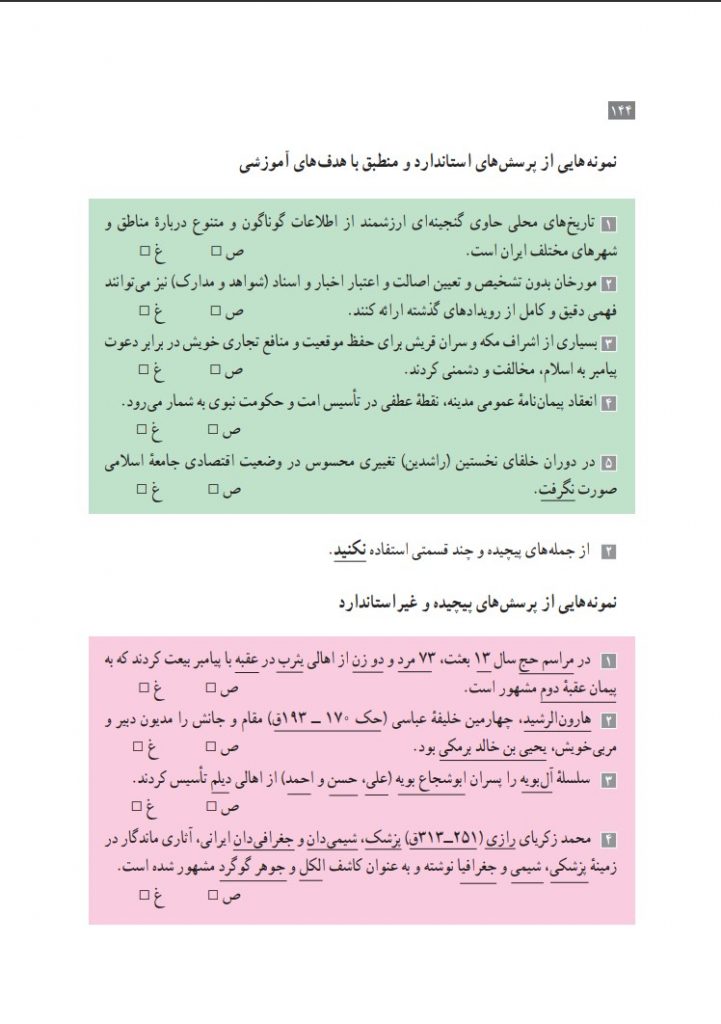 ۱۴۴
نمونه‌هایی از پرسش‌های استاندارد و منطبق با هدف‌های آموزشی
۱ تاریخ‌های محلی حاوی گنجینه‌ای ارزشمند از اطلاعات گوناگون و متنوع دربارهٔ مناطق و
شهرهای مختلف ایران است. ص □ غ □
۲ مورخان بدون تشخیص و تعیین اصالت و اعتبار اخبار و اسناد (شواهد و مدارک) نیز می‌توانند
فهمی دقیق و کامل از رویدادهای گذشته ارائه کنند. ص □ غ □
۳ بسیاری از اشراف مکه و سران قریش برای حفظ موقعیت و منافع تجاری خویش در برابر دعوت
پیامبر به اسلام، مخالفت و دشمنی کردند. ص □ غ □
۴ انعقاد پیمان‌نامهٔ عمومی مدینه، نقطهٔ عطفی در تأسیس امت و حکومت نبوی به شمار می‌رود.
ص □ غ □
۵ در دوران خلفای نخستین (راشدین) تغییری محسوس در وضعیت اقتصادی جامعهٔ اسلامی
صورت نگرفت. ص □ غ □
۲ از جمله‌های پیچیده و چند قسمتی استفاده نکنید.
نمونه‌هایی از پرسش‌های پیچیده و غیراستاندارد
۱ در مراسم حج سال ۱۳ بعثت، ۷۳ مرد و دو زن از اهالی یثرب در عقبه با پیامبر بیعت کردند که به
پیمان عقبهٔ دوم مشهور است. ص □ غ □
۲ هارون‌الرشید، چهارمین خلیفهٔ عباسی (حک ۱۷۰ ــ ۱۹۳ق) مقام و جانش را مدیون دبیر و
مربی‌خویش، یحیی بن خالد برمکی بود. ص □ غ □
۳ سلسلهٔ آل‌بویه را پسران ابوشجاع بویه (علی، حسن و احمد) از اهالی دیلم تأسیس کردند.
ص □ غ □
۴ محمد زکریای رازی (۲۵۱ــ۳۱۳ق) پزشک، شیمی‌دان و جغرافی‌دان ایرانی، آثاری ماندگار در
زمینهٔ پزشکی، شیمی و جغرافیا نوشته و به عنوان کاشف الکل و جوهر گوگرد مشهور شده است.
ص □ غ □